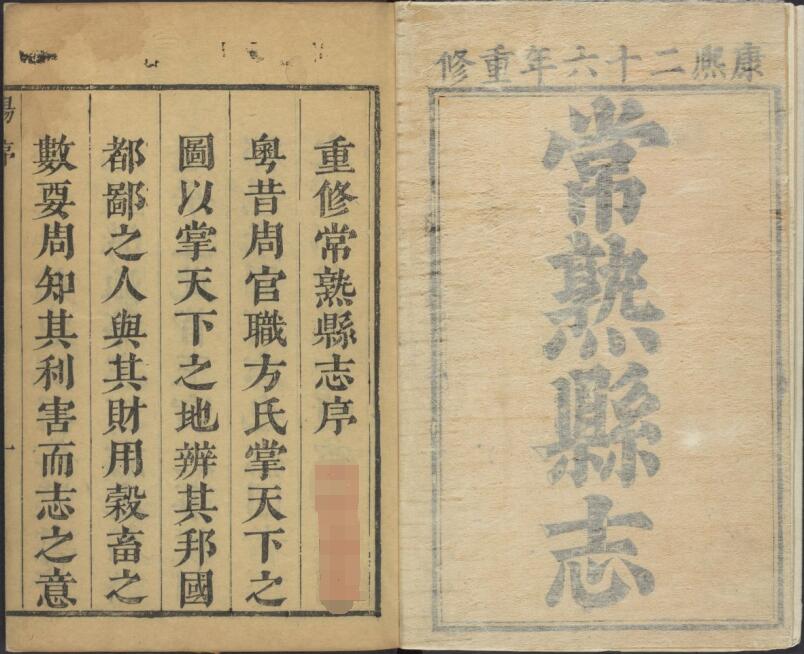 康熙二十六年重修
常熟縣志
重修常熟縣志序
粵昔周官職方氏掌天下之
圖以掌天下之地辨其邦國
都鄙之人與其財用穀畜之
數要周知其利害而志之意
楊序
一